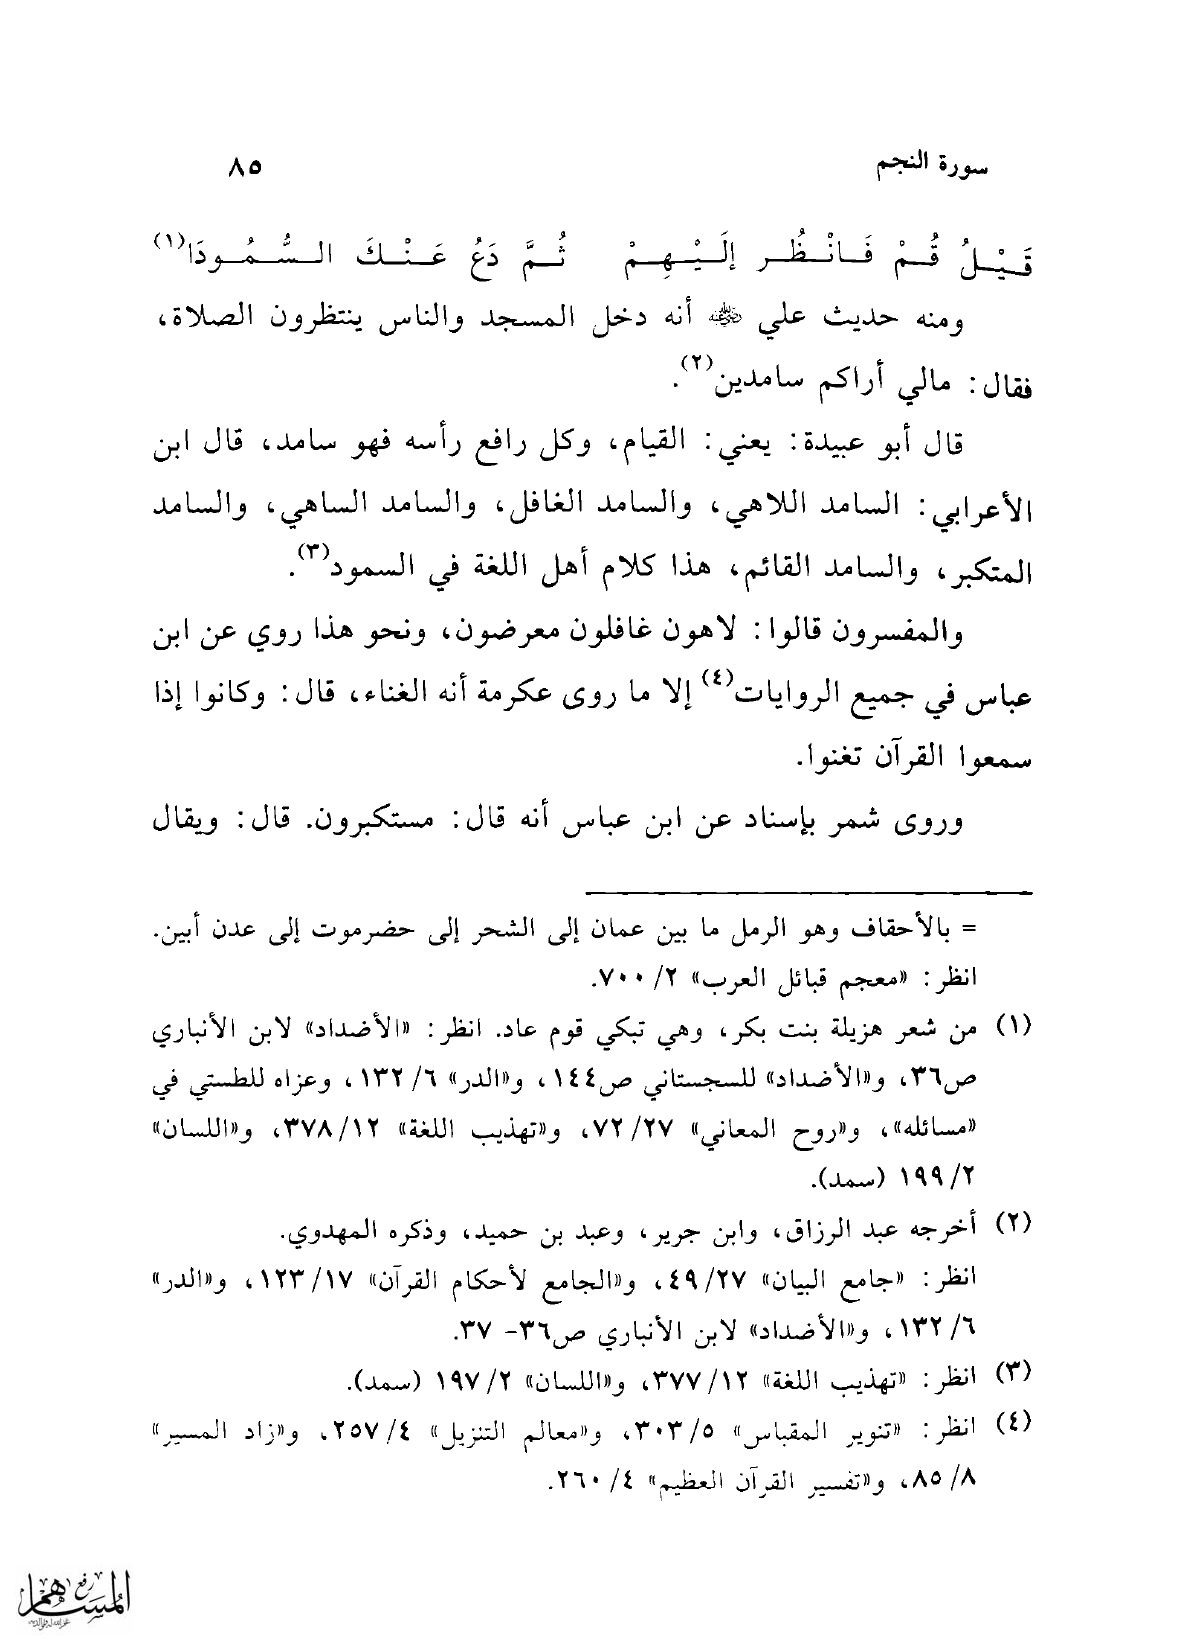 سورة النجم ٨٥
قَيْلُ قُمْ فَانْظُر إلَيْهِمْ ثُمَّ دَعُ عَنْكَ السُّمُودَا(١)
ومنه حديث علي ﵁ أنه دخل المسجد والناس ينتظرون الصلاة،
فقال: مالي أراكم سامدين(٢).
قال أبو عبيدة: يعني: القيام، وكل رافع رأسه فهو سامد، قال ابن
الأعرابي: السامد اللاهي، والسامد الغافل، والسامد الساهي، والسامد
المتكبر، والسامد القائم، هذا كلام أهل اللغة في السمود(٣).
والمفسرون قالوا: لاهون غافلون معرضون، ونحو هذا روي عن ابن
عباس في جميع الروايات(٤) إلا ما روى عكرمة أنه الغناء، قال: وكانوا إذا
سمعوا القرآن تغنوا.
وروى شمر بإسناد عن ابن عباس أنه قال: مستكبرون. قال: ويقال
= بالأحقاف وهو الرمل ما بين عمان إلى الشحر إلى حضرموت إلى عدن أبين.
انظر: «معجم قبائل العرب» ٢/ ٧٠٠.
(١) من شعر هزيلة بنت بكر، وهي تبكي قوم عاد. انظر: «الأضداد» لابن الأنباري
ص٣٦، و«الأضداد» للسجستاني ص١٤٤، و«الدر» ٦/ ١٣٢، وعزاه للطستي في
«مسائله»، و«روح المعاني» ٢٧/ ٧٢، و«تهذيب اللغة» ١٢/ ٣٧٨، و«اللسان»
٢/ ١٩٩ (سمد).
(٢) أخرجه عبد الرزاق، وابن جرير، وعبد بن حميد، وذكره المهدوي.
انظر: «جامع البيان» ٢٧/ ٤٩، و«الجامع لأحكام القرآن» ١٧/ ١٢٣، و«الدر»
٦/ ١٣٢، و«الأضداد» لابن الأنباري ص٣٦- ٣٧.
(٣) انظر: «تهذيب اللغة» ١٢/ ٣٧٧، و«اللسان» ٢/ ١٩٧ (سمد).
(٤) انظر: «تنوير المقباس» ٥/ ٣٠٣، و«معالم التنزيل» ٤/ ٢٥٧، و«زاد المسير»
٨/ ٨٥، و«تفسير القرآن العظيم» ٤/ ٢٦٠.
رفع
المساهم